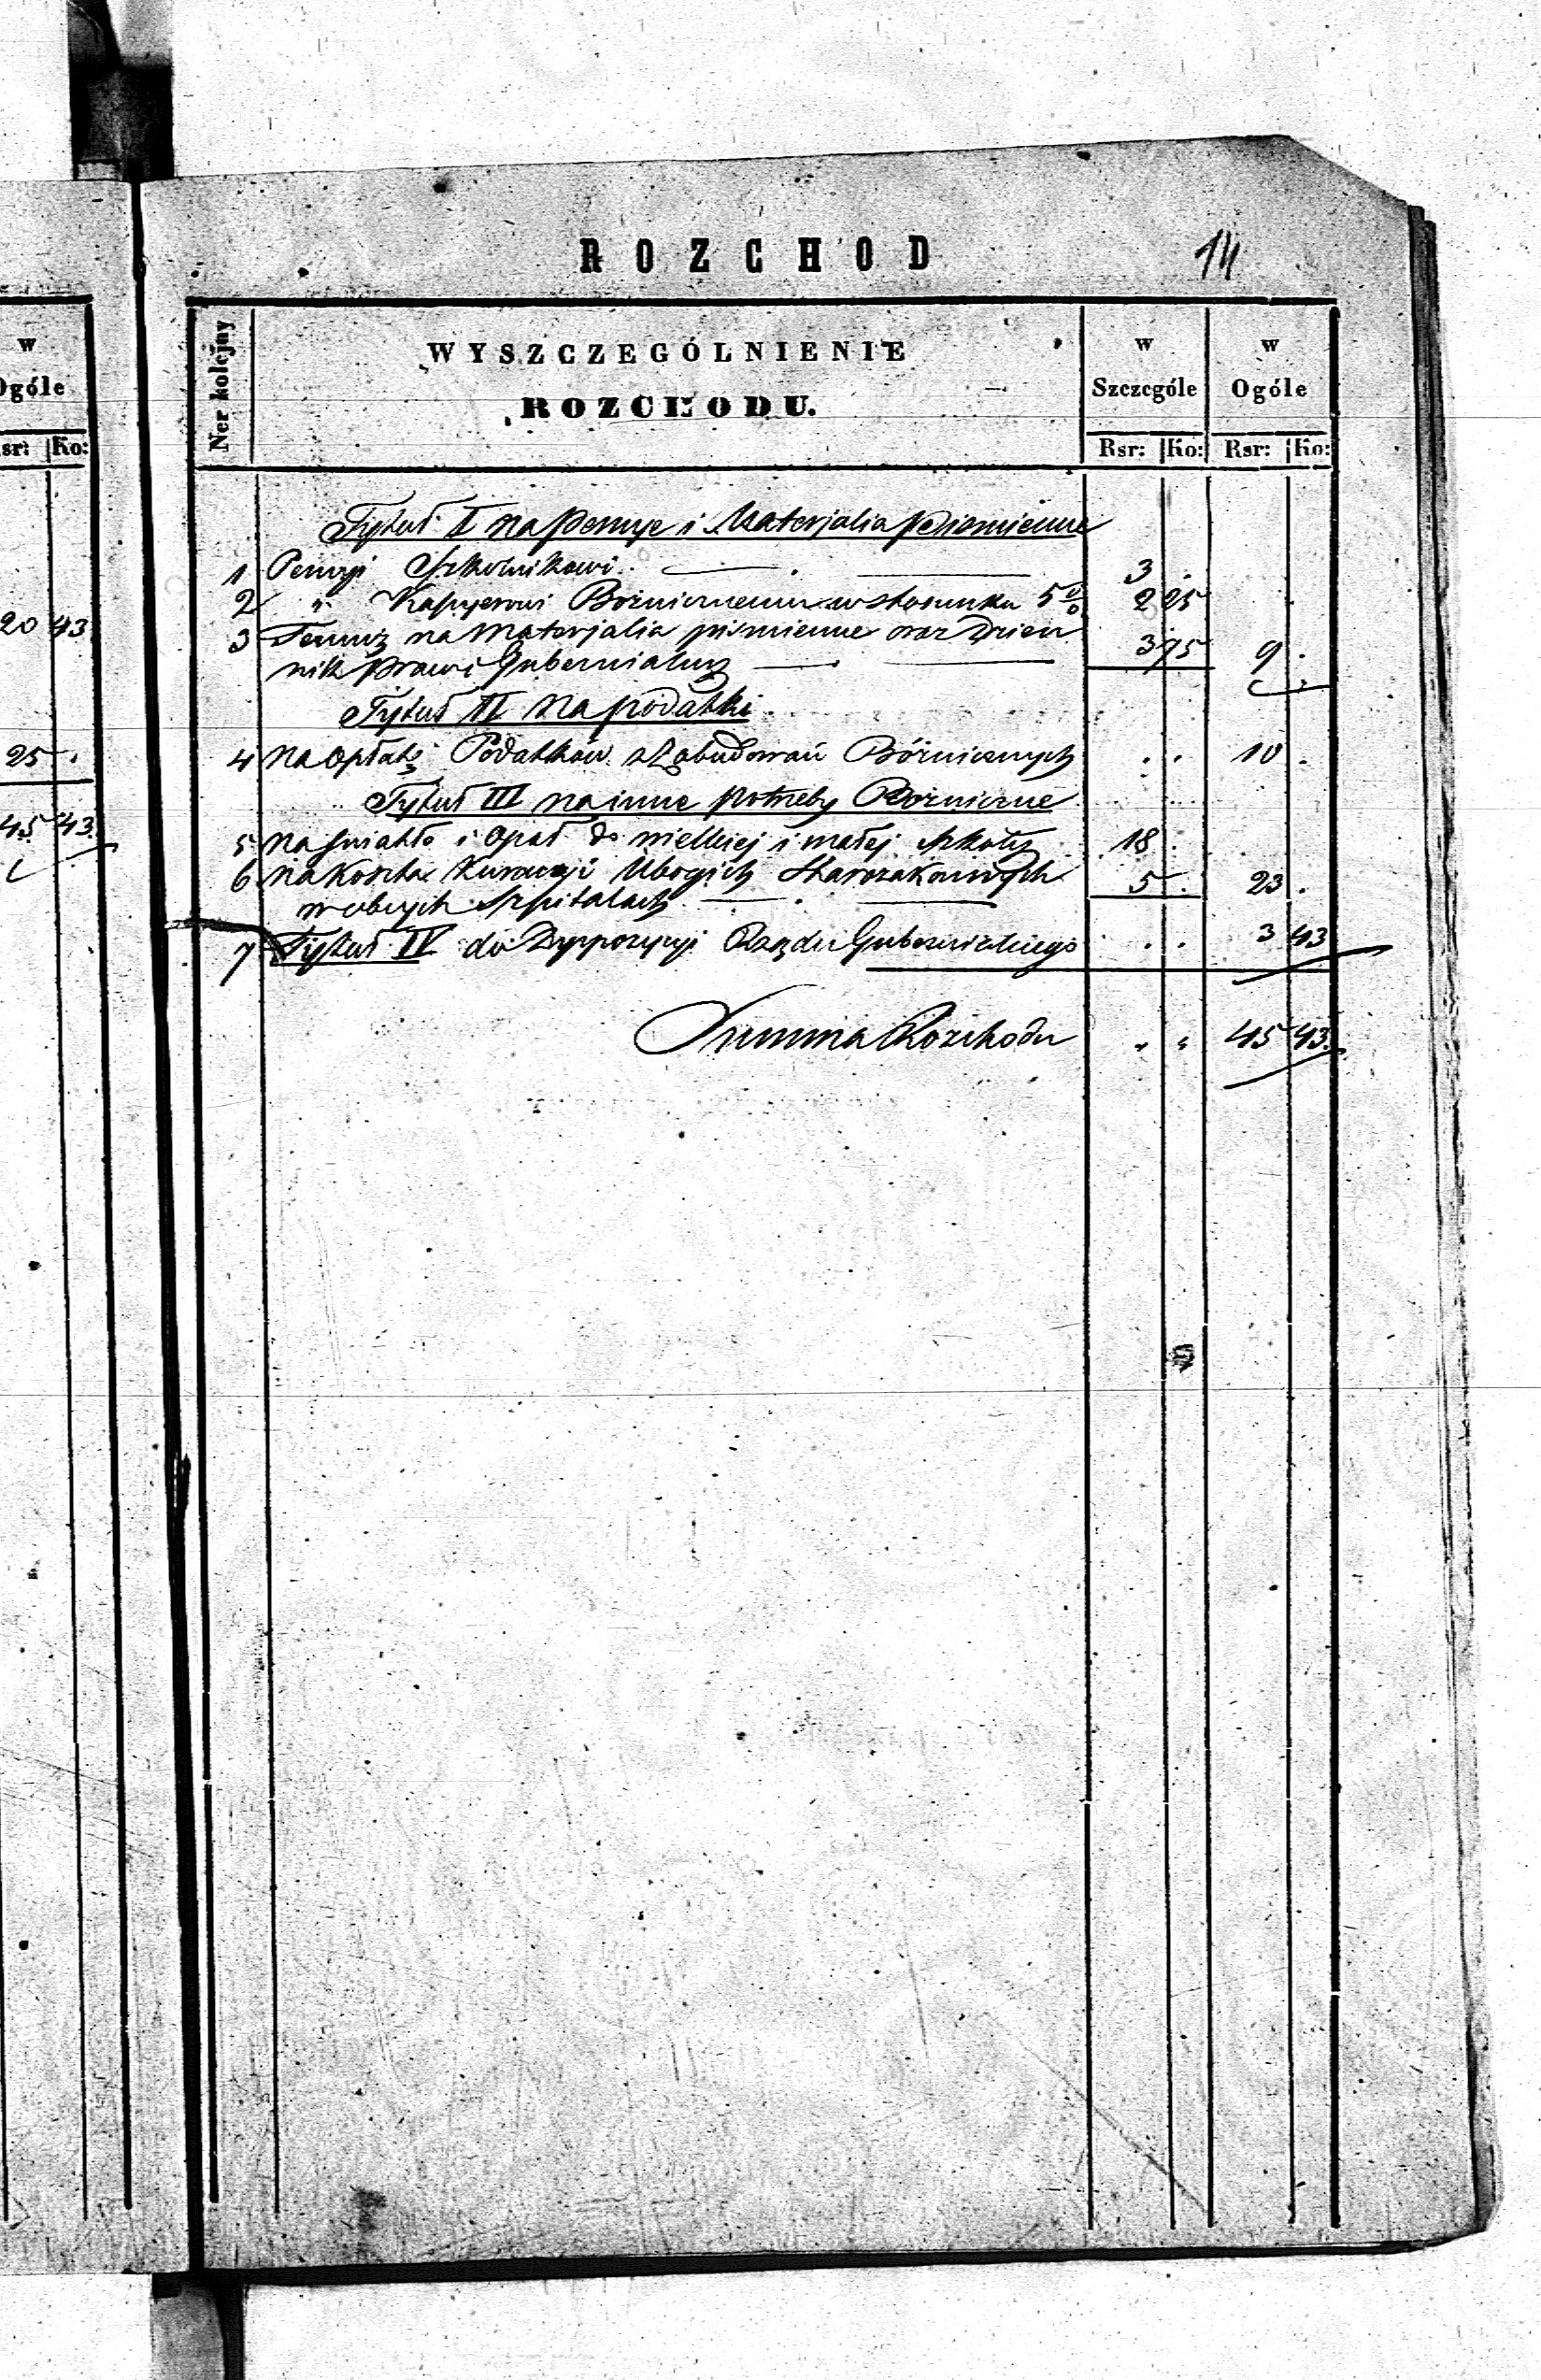 w
Ogóle
sr: Ko:
20 43
25 .
45 43
ROZCHOD
14
Ner kolejny
WYSZCZEGÓLNIENIE
ROZCHODU.
w Szczególe
w Ogóle
Rsr: Ko: Rsr: Ko:
Tytuł I na Pensye i Materjalia piśmienne
1 Pensyi Szkolnikowi 3 .
2 " Kassyerowi Bożnicznemu w stosunku 5 % 2 25
3 Temuż na materjalia piśmienne oraz Dzien
nik praw i Gubernialny 3 75 9 .
Tytuł II na podatki
4 Na opłatę Podatków z Zabudowań Bóżnicznych . . 10 .
Tytuł III na inne potrzeby Bożniczne
5 Na światło i opał do wielkiej i małej szkoły 18 .
6 Na koszta kuracyi Ubogich Starozakonnych
w obcych szpitalach 5 . 23 .
7 Tytuł IV do Dyspozycyi Rządu Gubernialnego . . 3 43
Summa Rozchodu " " 45 43